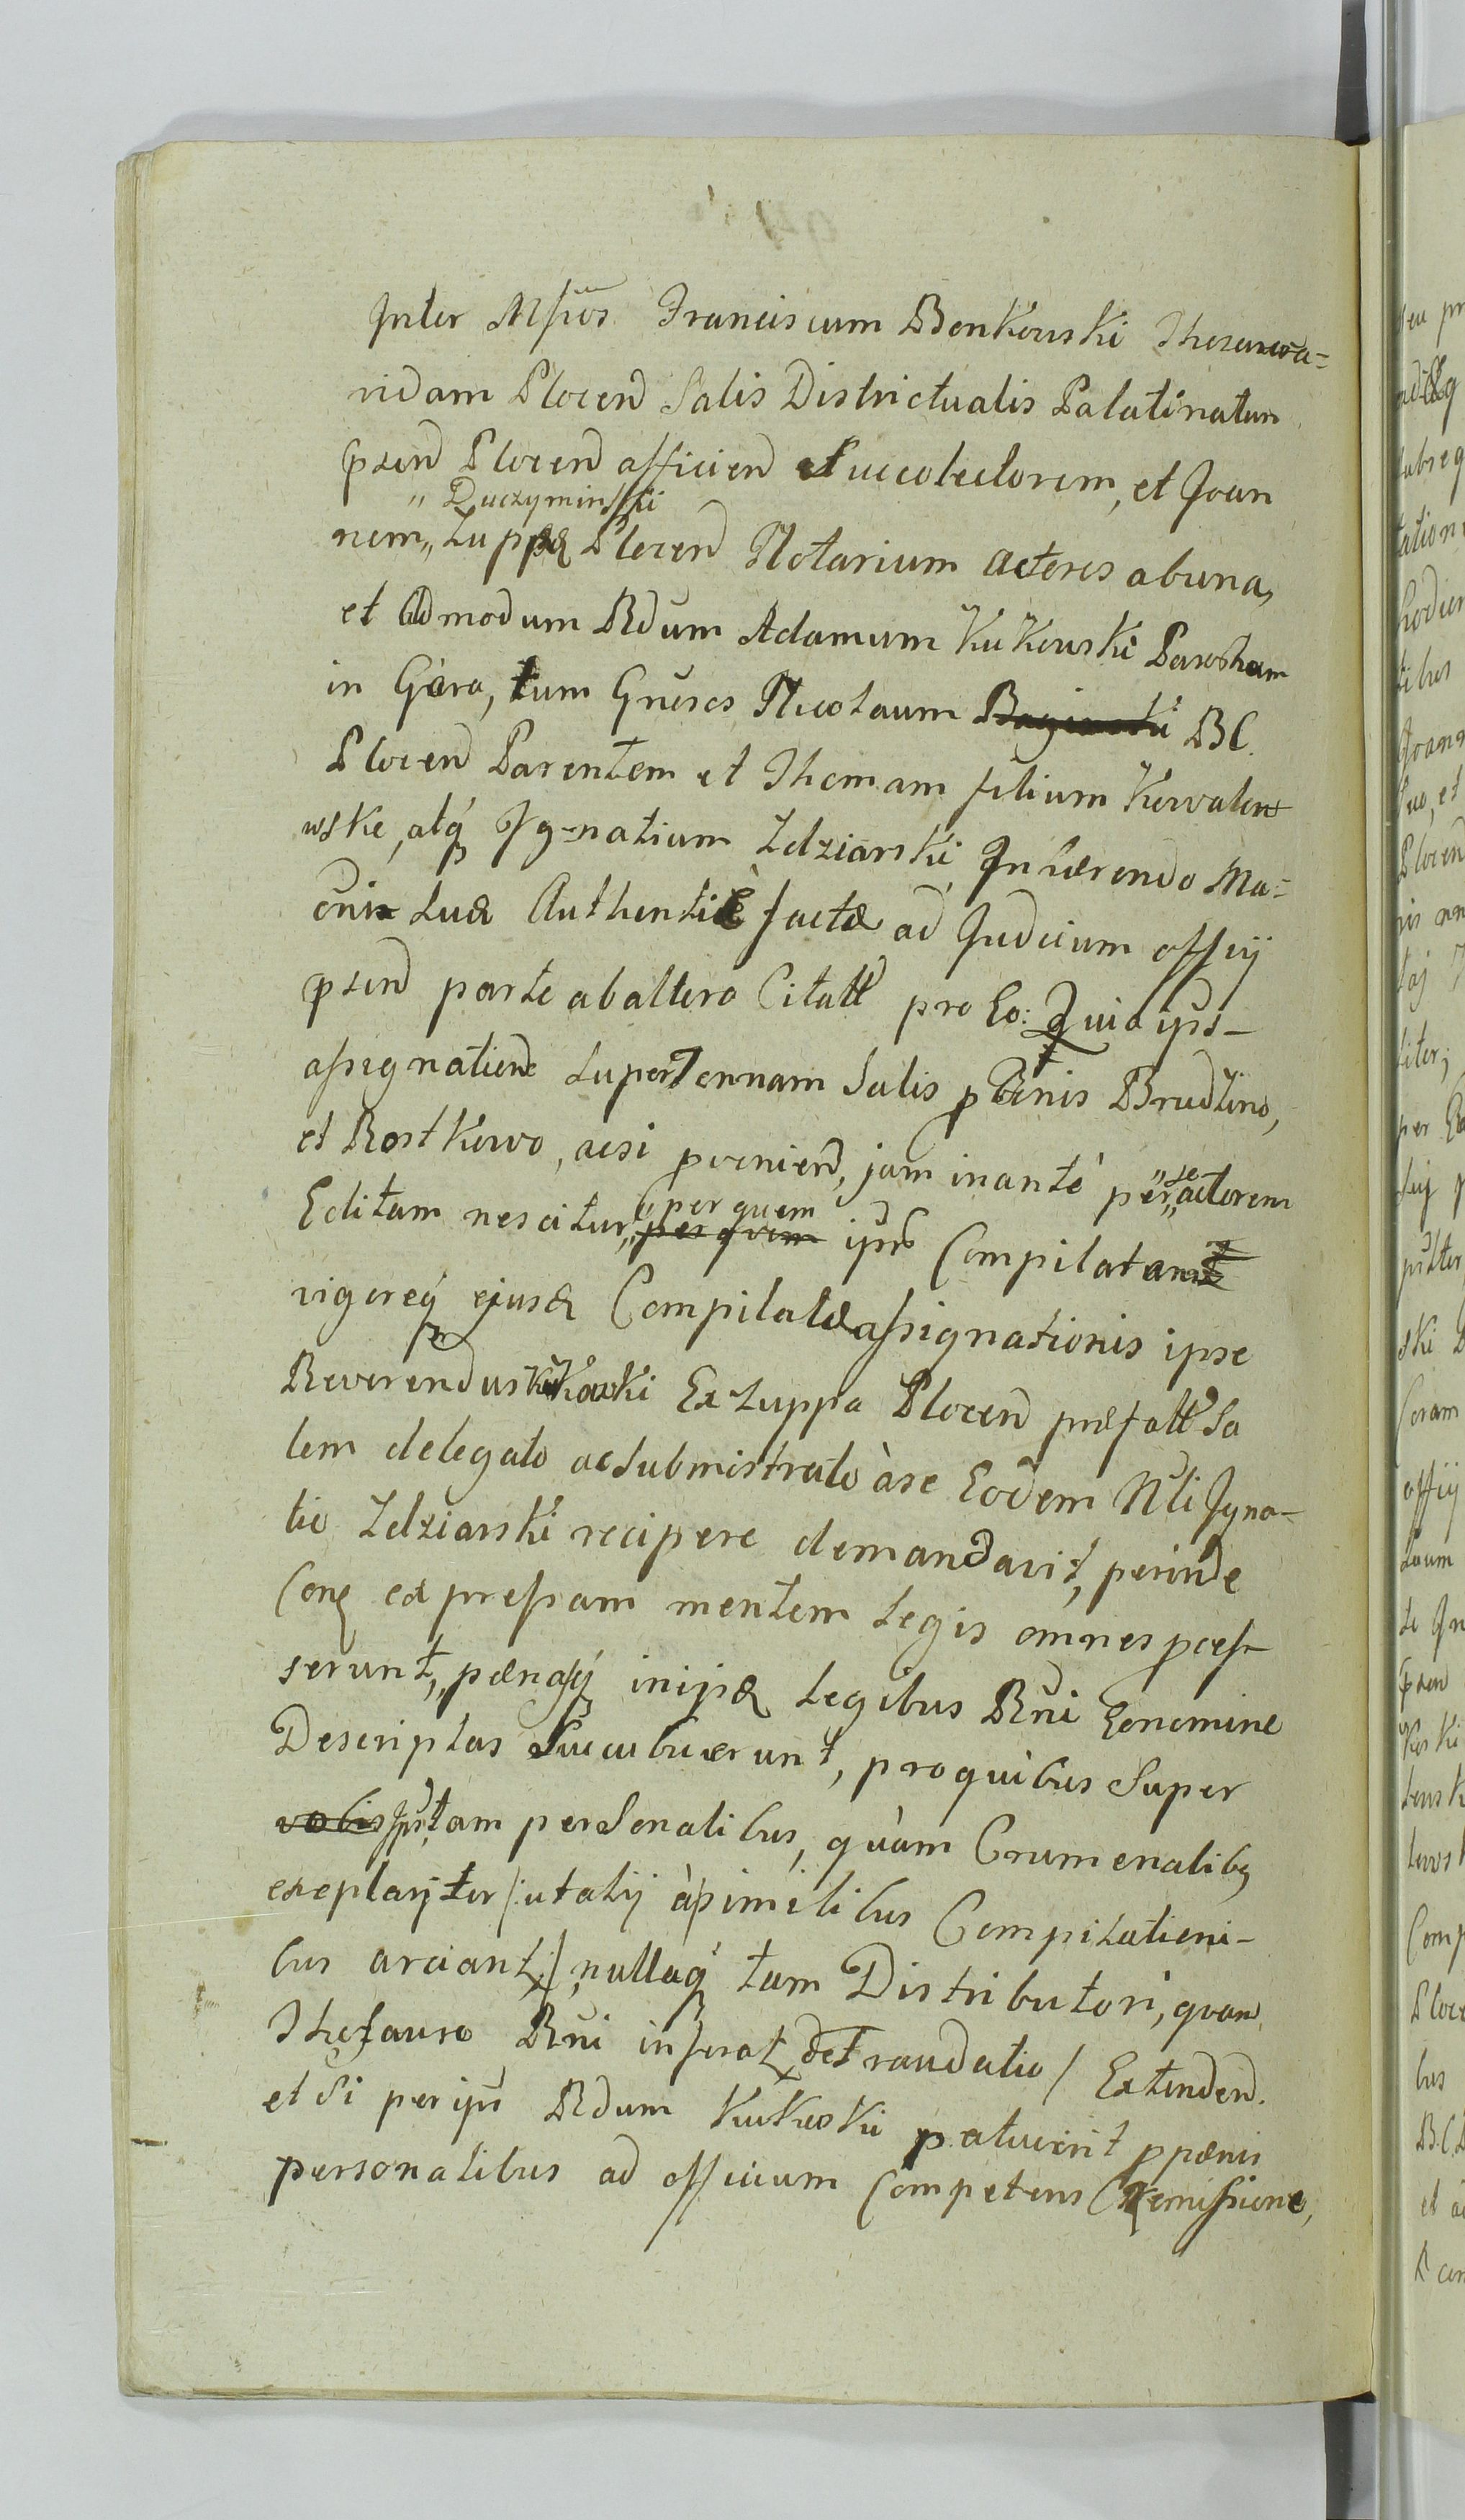 Inter Mfcos Franciscum Bonkowski Thesaura=
ridam Plocen Salis Districtualis Palatinatum
prsen Plocen officien Succolectorem, et Joan
„ Duczyminski
nem„ Zuppæ Plocen Notarium actores abuna,
et Admodum Rdum Adamum Kukowski Parochum
in Góra, tum Gnrosos Nicolaum Baginski BC.
Plocen Parentem et Thomam filium Kowalew
wskie, atq Ignatium Zdziarski, Inhærendo Ma=
onis suæ Authenticè factæ ad Judicium officij
prsen parte abaltera Citatt pro Eo: Quia ips-
assignatione super Tonnam Salis p Bonis Brudzino,
et Rostkowo, acsi provenien, jam inante per „se„ actorem
Editam nescitur„ „per quem per quem ipso Compilatam
vigoreq ejusd Compilatæ assignationis ipse
Reverendus Kukoski Ex Zuppa Plocen præfatt Sa
lem delegato ac Submistrato àse Eodem Nli Igna-
tio Zdziarski recipere demandavit, perinde
Conq expressam mentem legis omnes pcess
serunt, pænasq inijsd legibus Rni Eonomine
Descriptas Succubuerunt, proquibus super
vobis Ips tam personalibus, quàm Crumenalibq
exeplarijter /: utalij àsimilibus Compilationi-
bus arceant, :/ nullaq tam Distributori, quam
Thesauro Rni inferat defraudatio / Extenden.
et Si per ips Rdum Kukoski patuerit p pænis
personalibus ad officium Competens Remissione,